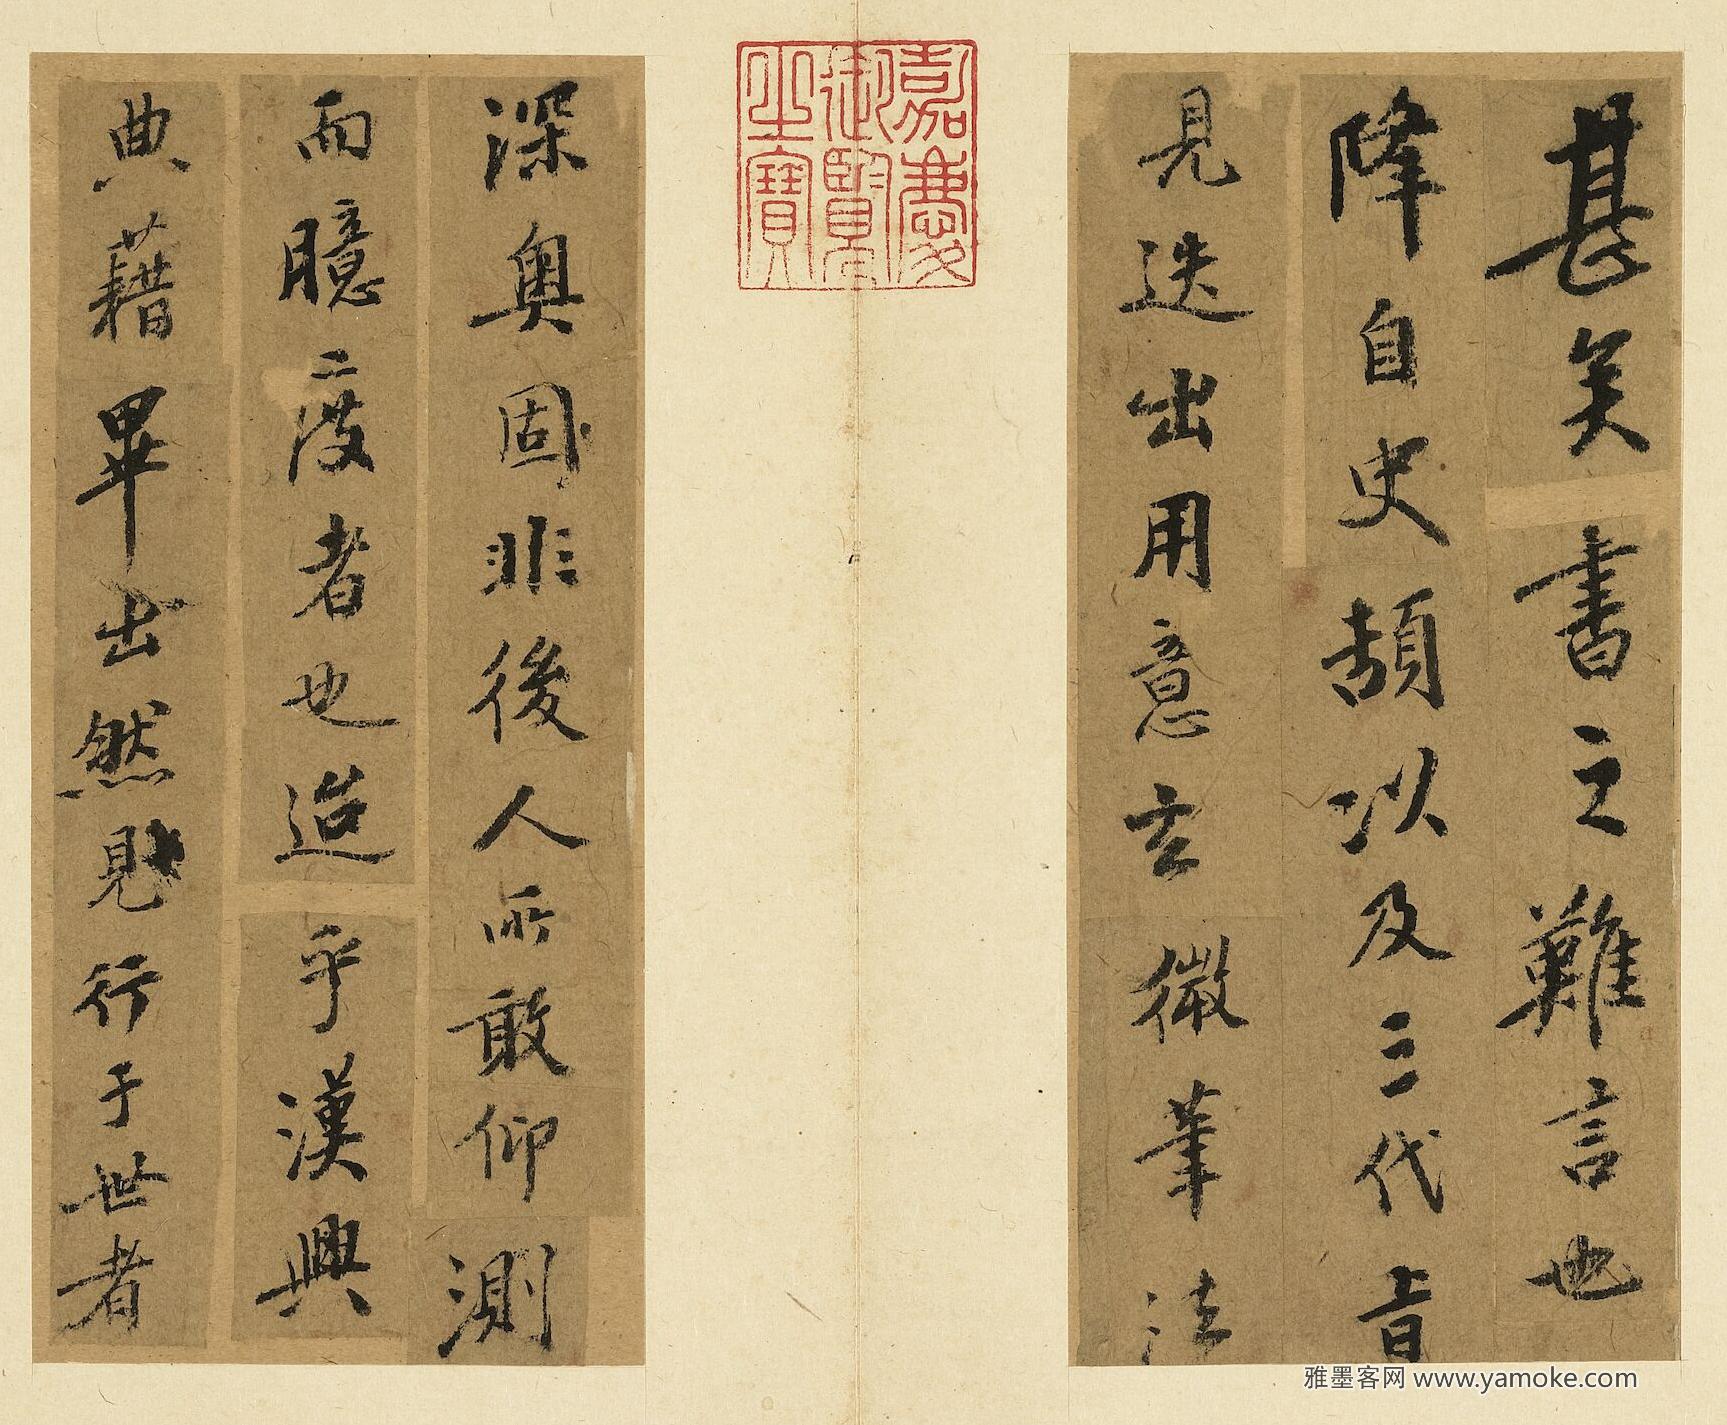 甚矣書之難言也
降自史頡以及三代旨
見迭出用意玄微筆法
嘉慶御覽之寶
深奥固非後人所敢仰測
而臆度者也迨乎漢興
典藉畢出然見行于世者
雅墨客网 www.yamoke.com